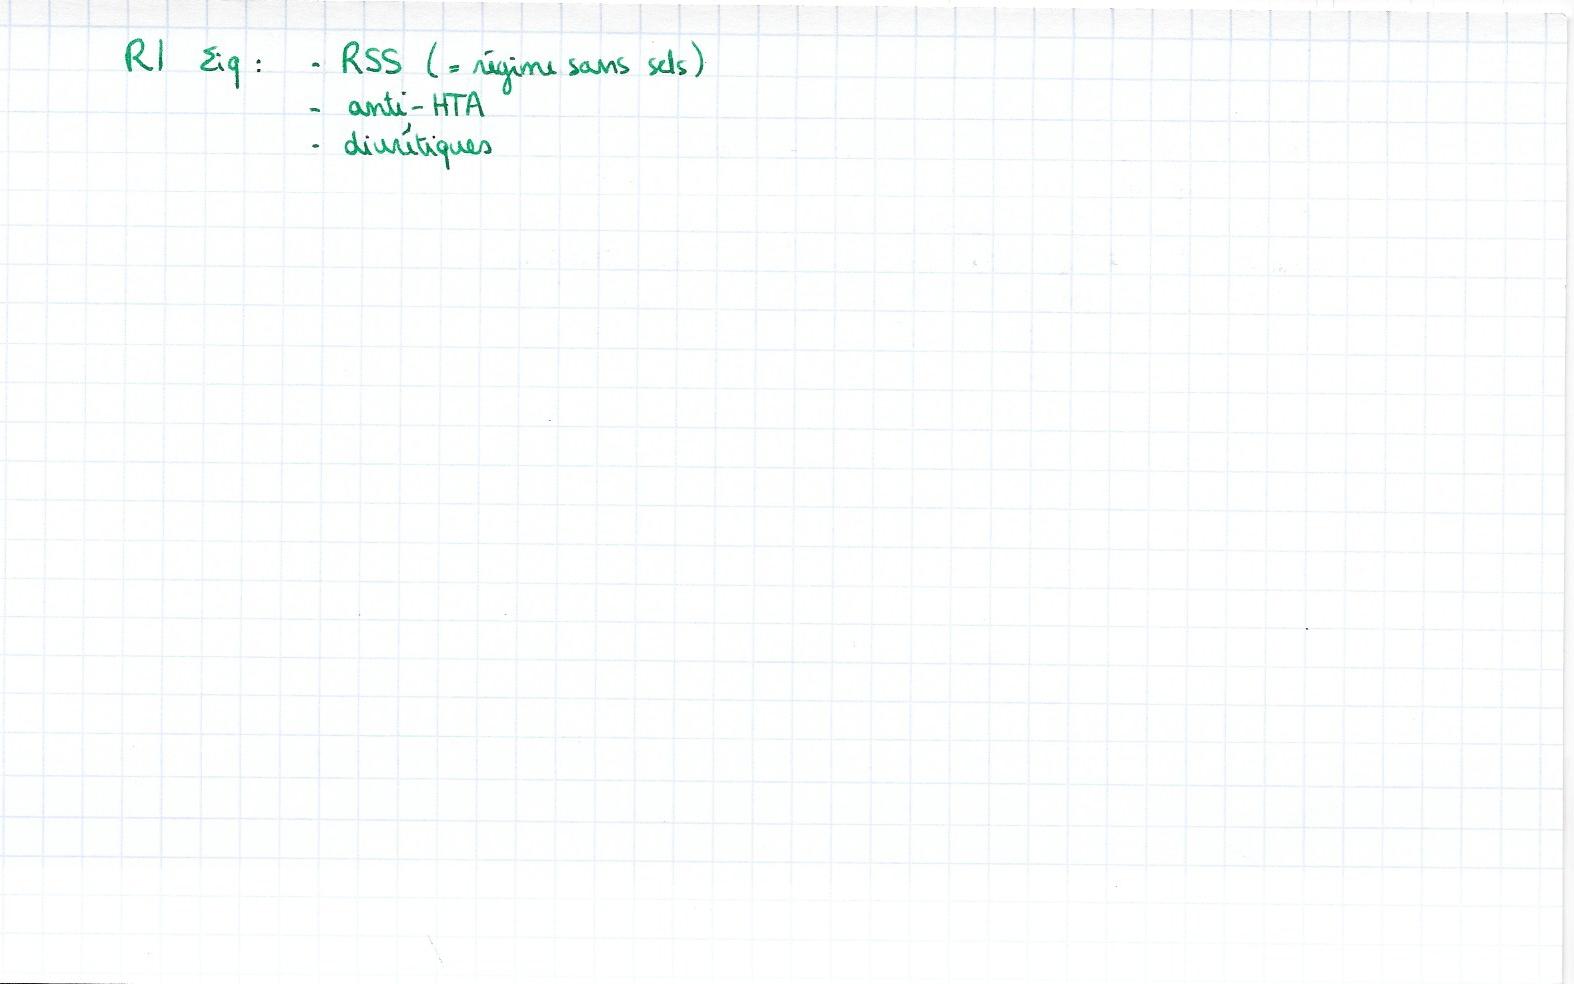 RI Σiq : - RSS (= régime sans sels)
- anti-HTA
- diurétiques